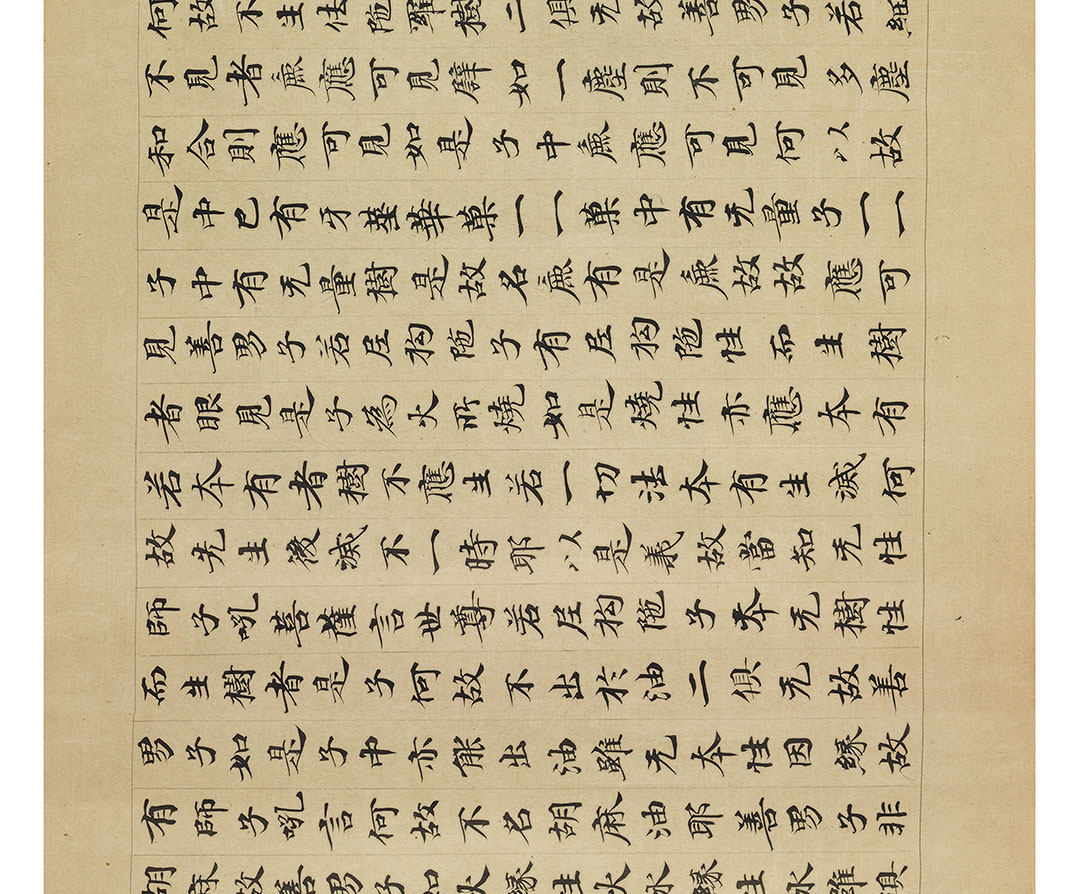 何故不生佉陁羅樹二俱无故善男子若細
不見者麁應可見譬如一塵則不可見多塵
和合則應可見如是子中麁應可見何以故
是中已有牙莖華菓一一菓中有无量子一一
子中有无量樹是故名麁有是麁故故應可
見善男子若尼拘陁子有尼拘陁性而生樹
者眼見是子為火所燒如是燒性亦應本有
若本有者樹不應生若一切法本有生滅何
故先生後滅不一時耶以是義故當知无性
師子吼菩薩言世尊若尼拘陁子本无樹性
而生樹者是子何故不出於油二俱无故善
男子如是子中亦能出油雖无本性因緣故
有師子吼言何故不名胡麻油耶善男子非
胡麻故善男子如火緣生火水緣生水雖俱